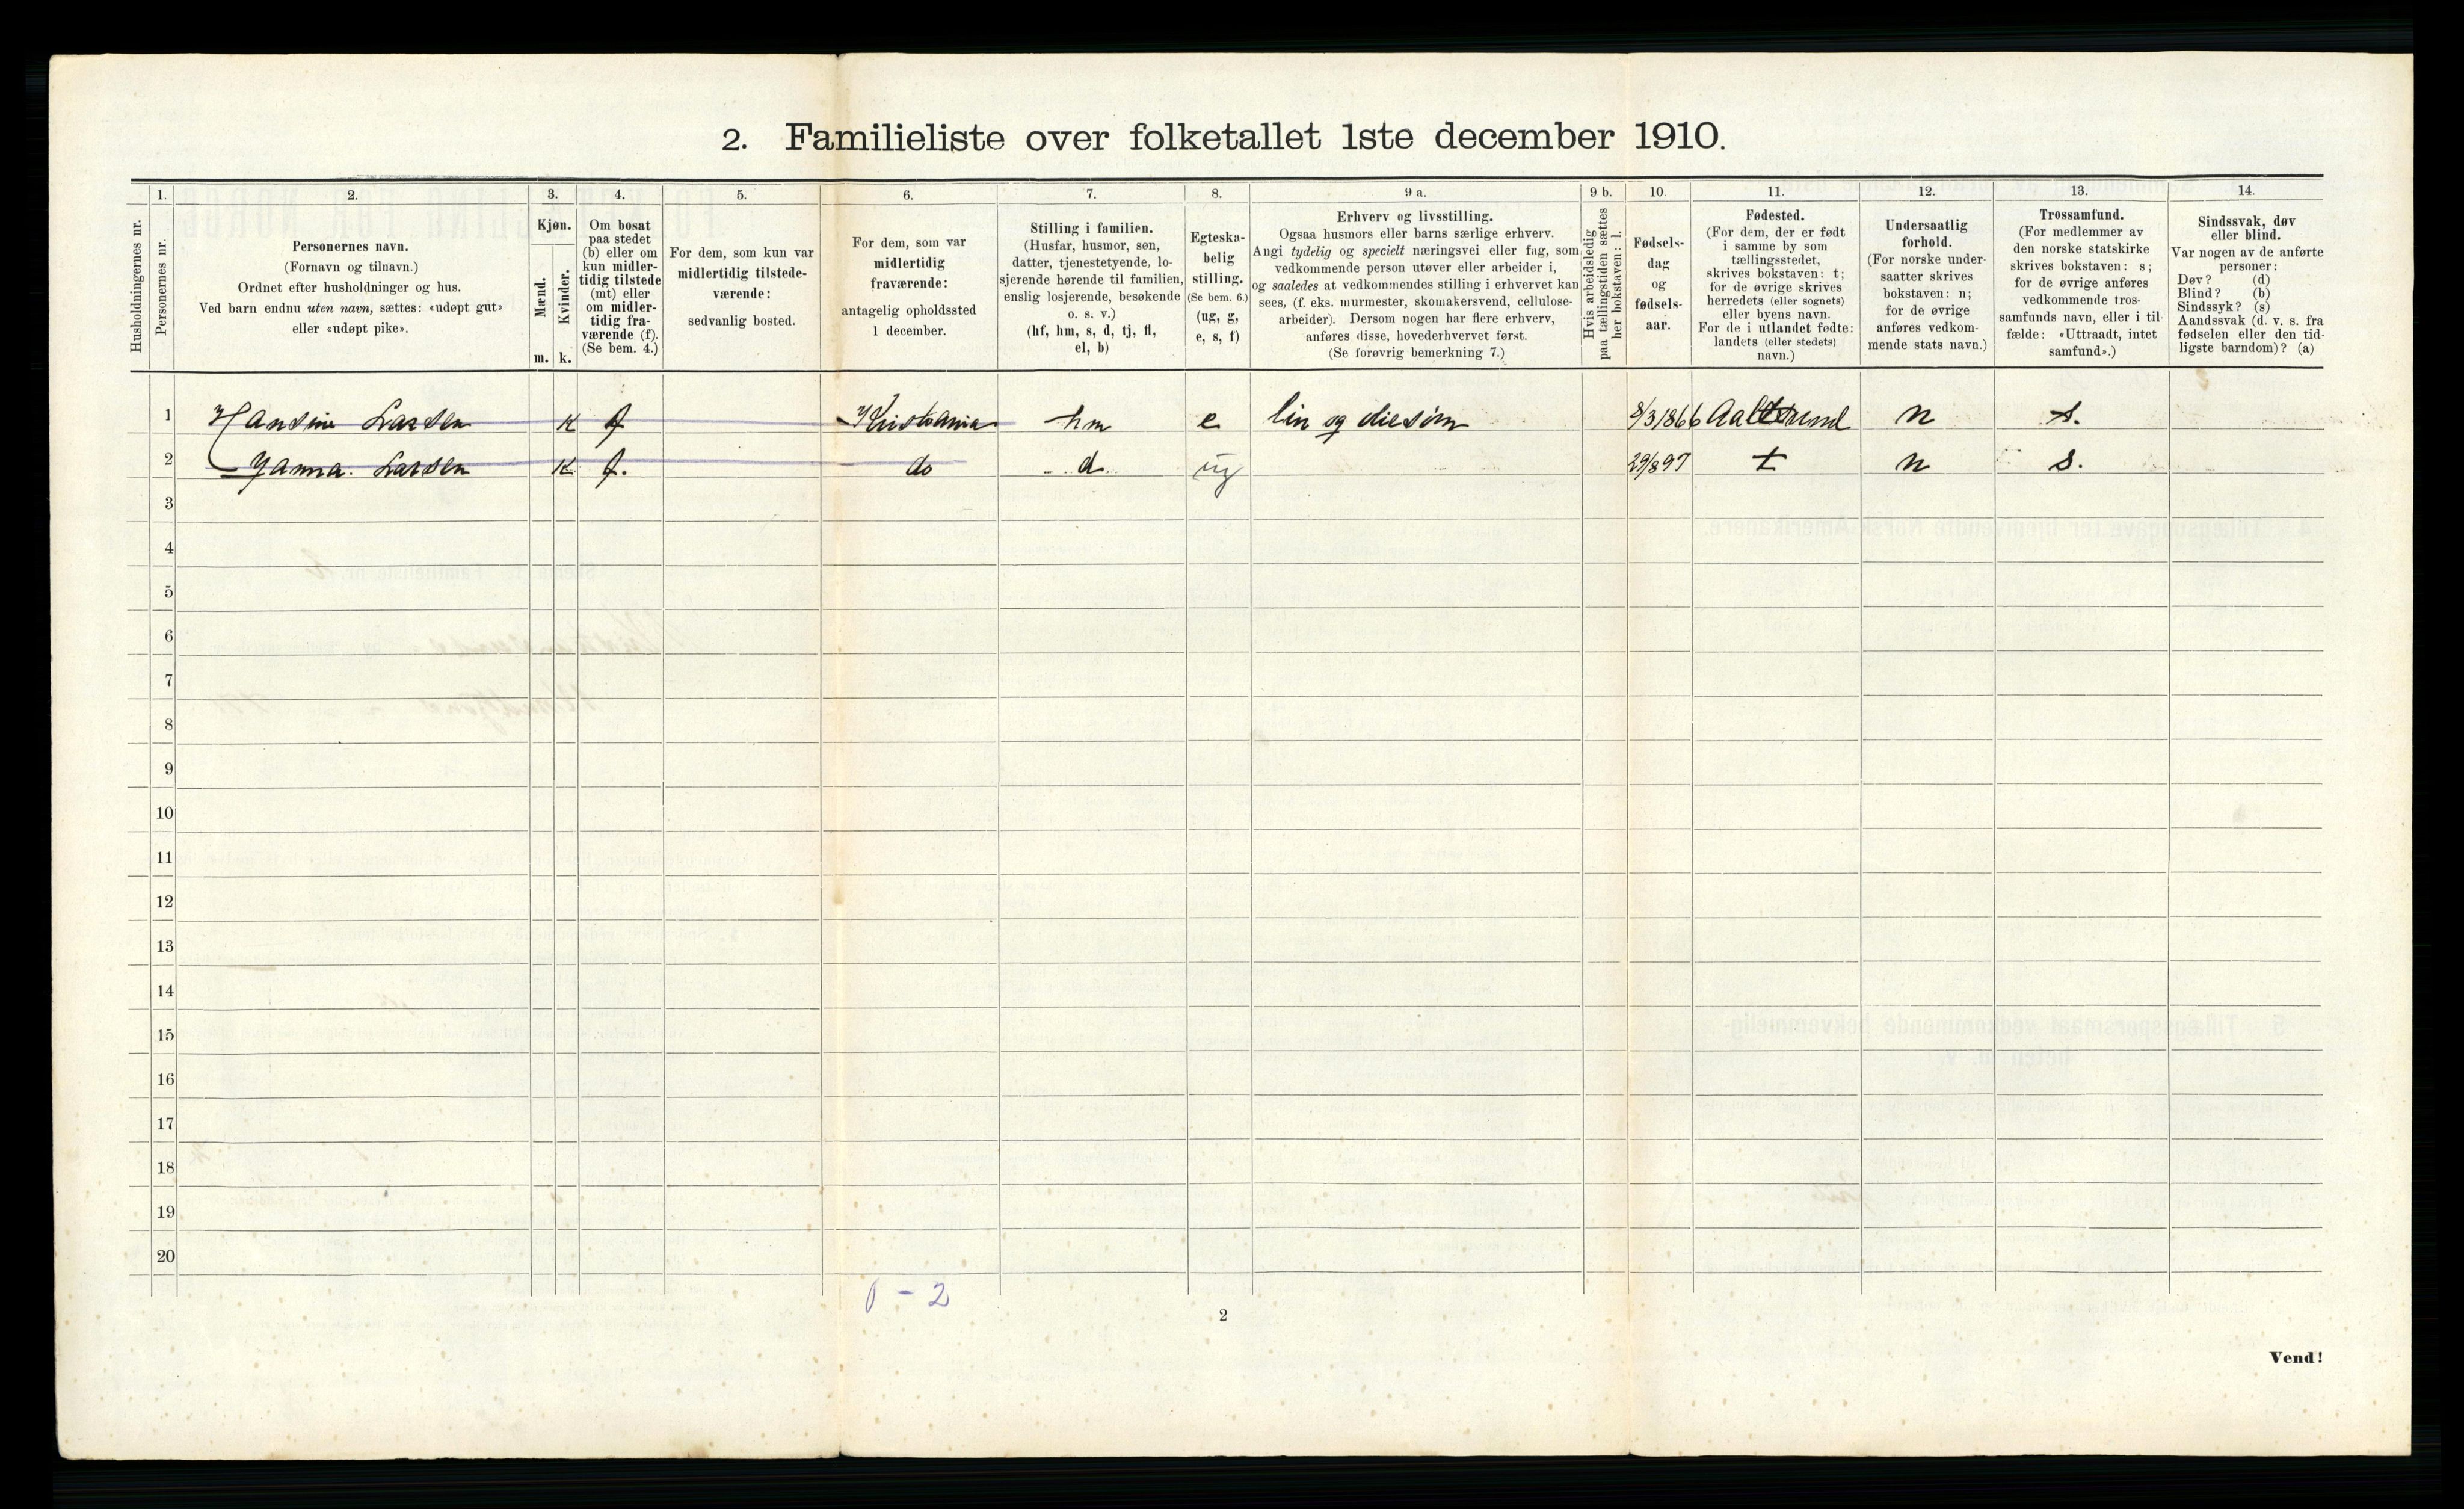 2. Familieliste over folketallet 1ste december 1910.
Husholdningernes nr.
1.
Personernes nr.
2.
Personernes navn.
(Fornavn og tilnavn.)
Ordnet efter husholdninger og hus.
Ved barn endnu uten navn, sættes: «udøpt gut»
eller «udøpt pike».
3.
Kjøn.
Mænd.
m.
Kvinder.
k.
4.
Om bosat
paa stedet
(b) eller om
kun midler-
tidig tilstede
(mt) eller
om midler-
tidig fra-
værende (f).
(Se bem. 4.)
5.
For dem, som kun var
midlertidig tilstede-
værende:
sedvanlig bosted.
6.
For dem, som var
midlertidig
fraværende:
antagelig opholdssted
1 december.
7.
Stilling i familien.
(Husfar, husmor, søn,
datter, tjenestetyende, lo-
sjerende hørende til familien,
enslig losjerende, besøkende
o. s. v.)
(hf, hm, s, d, tj, fl,
el, b)
8.
Egteska-
belig
stilling.
(Se bem. 6.)
(ug, g,
e, s, f)
9 a.
Erhverv og livsstilling.
Ogsaa husmors eller barns særlige erhverv.
Angi tydelig og specielt næringsvei eller fag, som
vedkommende person utøver eller arbeider i,
og saaledes at vedkommendes stilling i erhvervet kan
sees, (f. eks. murmester, skomakersvend, cellulose-
arbeider). Dersom nogen har flere erhverv,
anføres disse, hovederhvervet først.
(Se forøvrig bemerkning 7.)
9 b.
Hvis arbeidsledig
paa tællingstiden sættes
her bokstaven: l.
10.
Fødsels-
dag
og
fødsels-
aar.
11.
Fødested.
(For dem, der er født
i samme by som
tællingsstedet,
skrives bokstaven: t;
for de øvrige skrives
herredets (eller sognets)
eller byens navn.
For de i utlandet fødte:
landets (eller stedets)
navn.)
12.
Undersaatlig
forhold.
(For norske under-
saatter skrives
bokstaven: n;
for de øvrige
anføres vedkom-
mende stats navn.)
13.
Trossamfund.
(For medlemmer av
den norske statskirke
skrives bokstaven: s;
for de øvrige anføres
vedkommende tros-
samfunds navn, eller i til-
fælde: «Uttraadt, intet
samfund».)
14.
Sindssvak, døv
eller blind.
Var nogen av de anførte
personer:
Døv? (d)
Blind? (b)
Sindssyk? (s)
Aandssvak (d. v. s. fra
fødselen eller den tid-
ligste barndom)? (a)
1 Hansine Larsen K f Kristiania hm e lin og 8/3 1866 Aalesund n s.
2 Hanna. Larsen K f. do d. ug 29/8 97 t n s.
3
4
5
6
7
8
9
10
11
12
13
14
15
16
17
18
19
20
0 - 2
2
Vend!